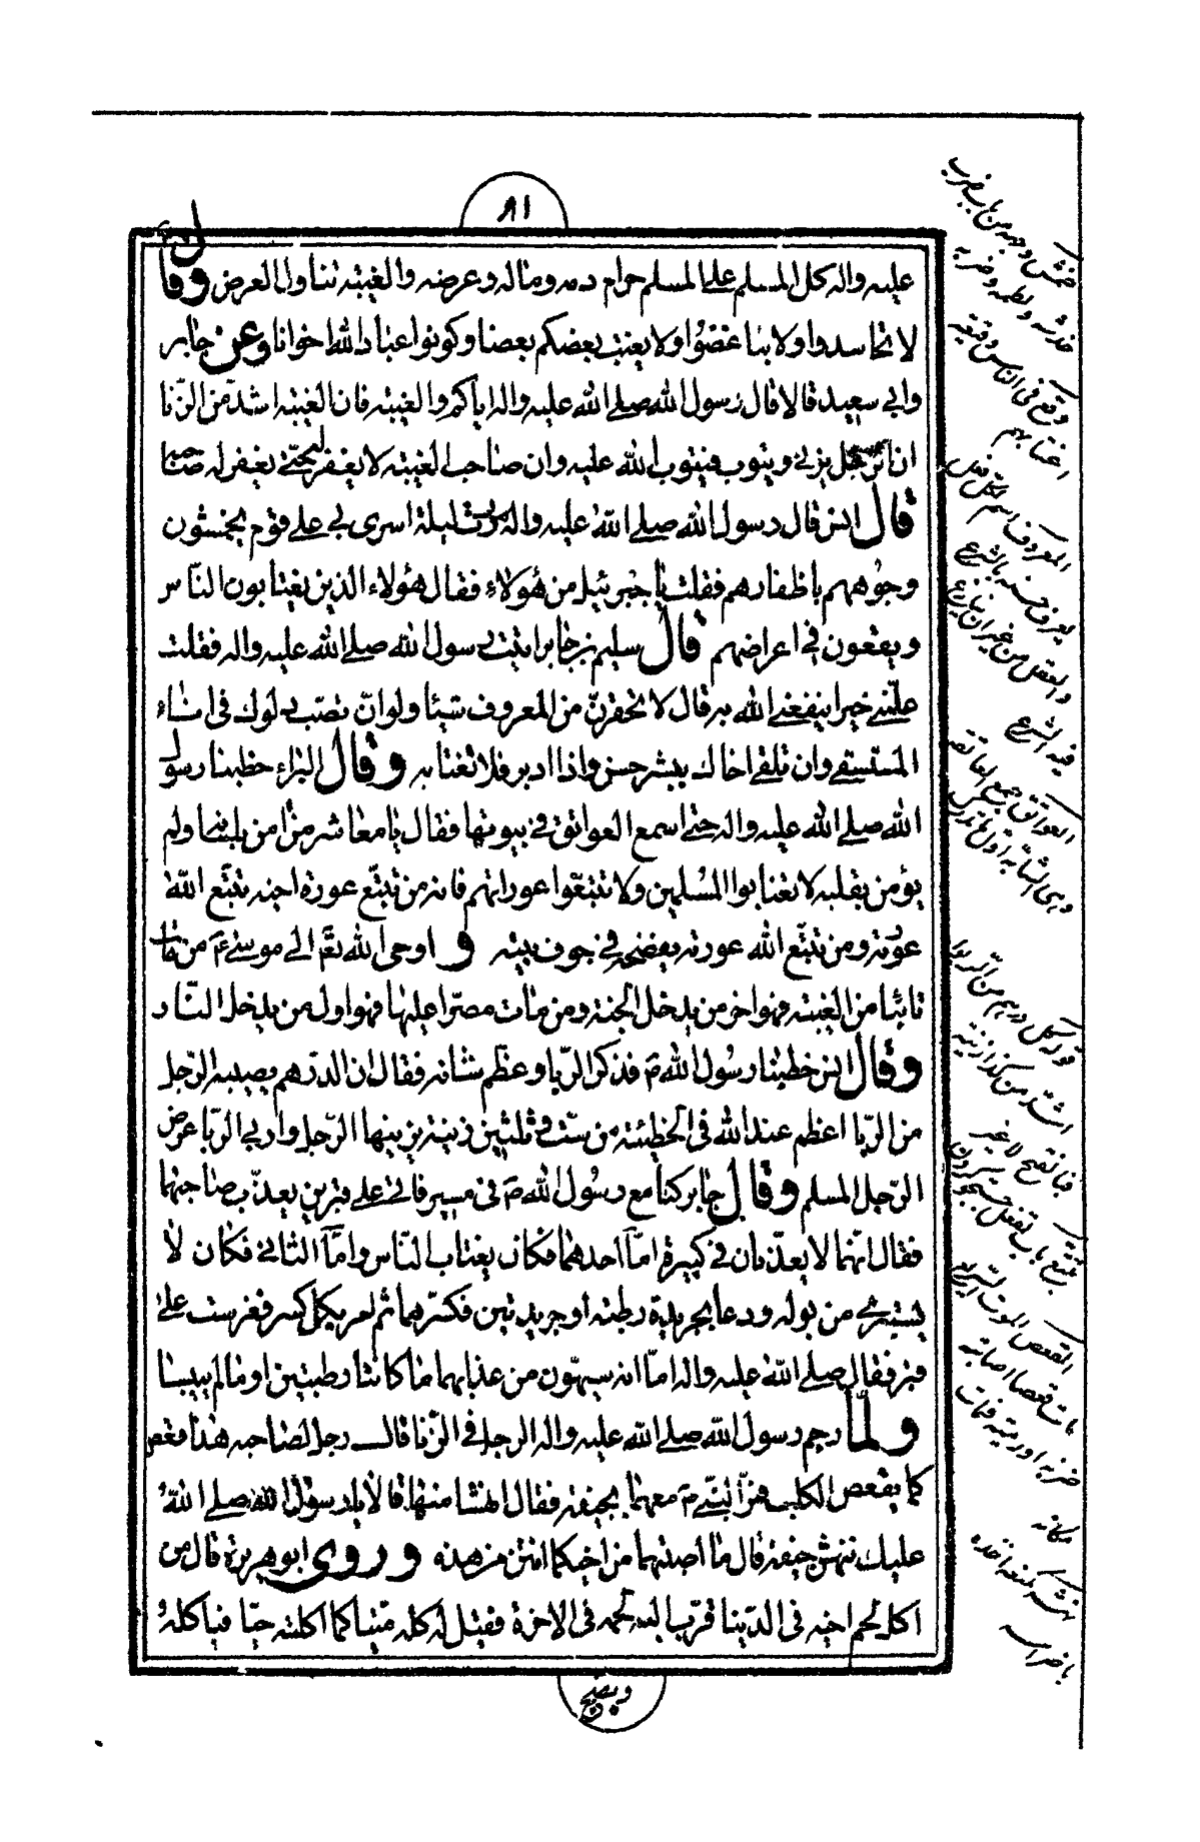 ٨١
عليه واله كل المسلم على المسلم حرام دمه وماله وعرضه والغيبة تناول العرض وقال
لا تحاسدوا ولا تباغضوا ولا يغتب بعضكم بعضا وكونوا عباد الله اخوانا وعن جابر
وابي سعيد قالا قال رسول الله صلى الله عليه واله اياكم والغيبة فان الغيبة اشد من الزنا
ان الرجل يزني ويتوب فيتوب الله عليه وان صاحب الغيبة لا يغفر له حتى يغفر له صاحبه
قال انس قال رسول الله صلى الله عليه واله مررت ليلة اسرى بي على قوم يخمشون
وجوههم باظفارهم فقلت يا جبرئيل من هؤلاء فقال هؤلاء الذين يغتابون الناس
ويقعون في اعراضهم قال سليم بن جابر اتيت رسول الله صلى الله عليه واله فقلت
علمني خيرا ينفعني الله به قال لا تحقرن من المعروف شيئا ولو ان تصب دلوك في اناء
المستسقي وان تلقى اخاك ببشر حسن واذا ادبر فلا تغتابه وقال البراء خطبنا رسول
الله صلى الله عليه واله حتى اسمع العواتق في بيوتها فقال يا معاشر من امن بلسانه ولم
يؤمن بقلبه لا تغتابوا المسلمين ولا تتبعوا عوراتهم فانه من تتبع عورة اخيه تتبع الله
عورته ومن تتبع الله عورته يفضحه في جوف بيته و اوحى الله تعالى الى موسى ع من مات
تائبا من الغيبة فهو اخر من يدخل الجنة ومن مات مصرا عليها فهو اول من يدخل النار
وقال انس خطبنا رسول الله ص فذكر الربا وعظم شانه فقال ان الدرهم يصيبه الرجل
من الربا اعظم عند الله في الخطيئة من ست وثلثين زنية يزنيها الرجل واربى الربا عرض
الرجل المسلم وقال جابر كنا مع رسول الله ص في مسير فاتى على قبرين يعذب صاحبهما
فقال انهما لا يعذبان في كبيرة اما احدهما فكان يغتاب الناس واما الثاني فكان لا
يستبرئ من بوله ودعا بجريدة رطبة او جريدتين فكسرهما ثم امر بكل كسرة فغرست على
قبر فقال صلى الله عليه واله اما انه سيهون من عذابهما ما كانتا رطبتين او ما لم ييبسا
ولما رجم رسول الله صلى الله عليه واله الرجل في الزنا قال رجل لصاحبه هذا قعص
كما يقعص الكلب فمر النبي ص معهما بجيفة فقال انهشا منها قالا يا رسول الله صلى الله
عليك ننهش جيفة قال ما اصبتما من اخيكما انتن من هذه وروى ابو هريرة قال من
اكل لحم اخيه في الدنيا قرب اليه لحمه في الاخرة فقيل له كله ميتا كما اكلته حيا فياكله
ويصيح
خمش وجهه من باب ضرب
خدشه ولطمه وضربه
وقع في الناس وقيعة
اغتابهم
المعروف اسم لكل فعل
يعرف حسنه بالشرع
والعقل من غير ان ينازع
فيه الشرع
العواتق جمع العاتقة
وهي الشابة اول ما تدرك
اشد من كذا زنية
القعص الموت السريع
مات قعصا اصابته
ضربة او رمية فمات
مكانه
نهشه كمنعه اخذه
باضراسه